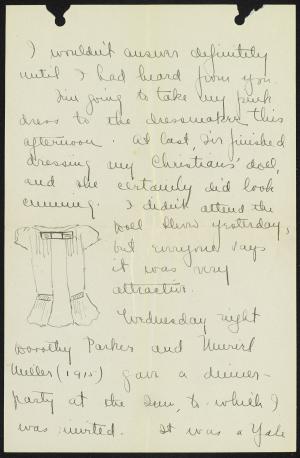 I wouldn't answer definitely
until I had heard from you.
I'm going to take my pink
dress to the dressmaker this
afternoon. At last, I've finished
dressing my Christians' doll,
and she certainly did look
cunning. I didn't attend the
Doll Show yesterday,
but everyone says
it was very
attractive.
Wednesday night
Dorothy Parker and Muriel
Miller (1915) gave a dinner-
party at the Inn, to which I
was invited. It was a Yale